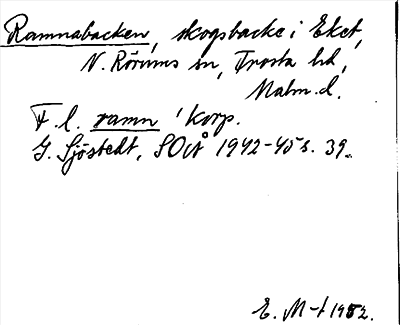 Ramnabacken, skogsbacke i Eket,
N. Rörums sn, Frosta hd,
Malm. l.
F. l. ramn 'korp.
G. Sjöstedt, SOÅ 1942-45 s. 39.
E. M-t 1952.